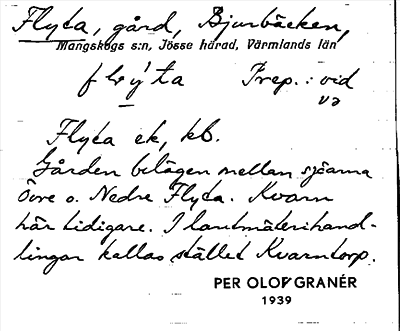 Flyta, gård, Bjurbäcken,
Mangskogs s:n, Jösse härad, Värmlands län
Prep.: vid
va
Flyta ek, kb.
Gården belägen mellan sjöarna
Övre o. Nedre Flyta. Kvarn
här tidigare. I lantmäterihand-
lingar kallas stället Kvarntorp.
PER OLOF GRANÉR
1939